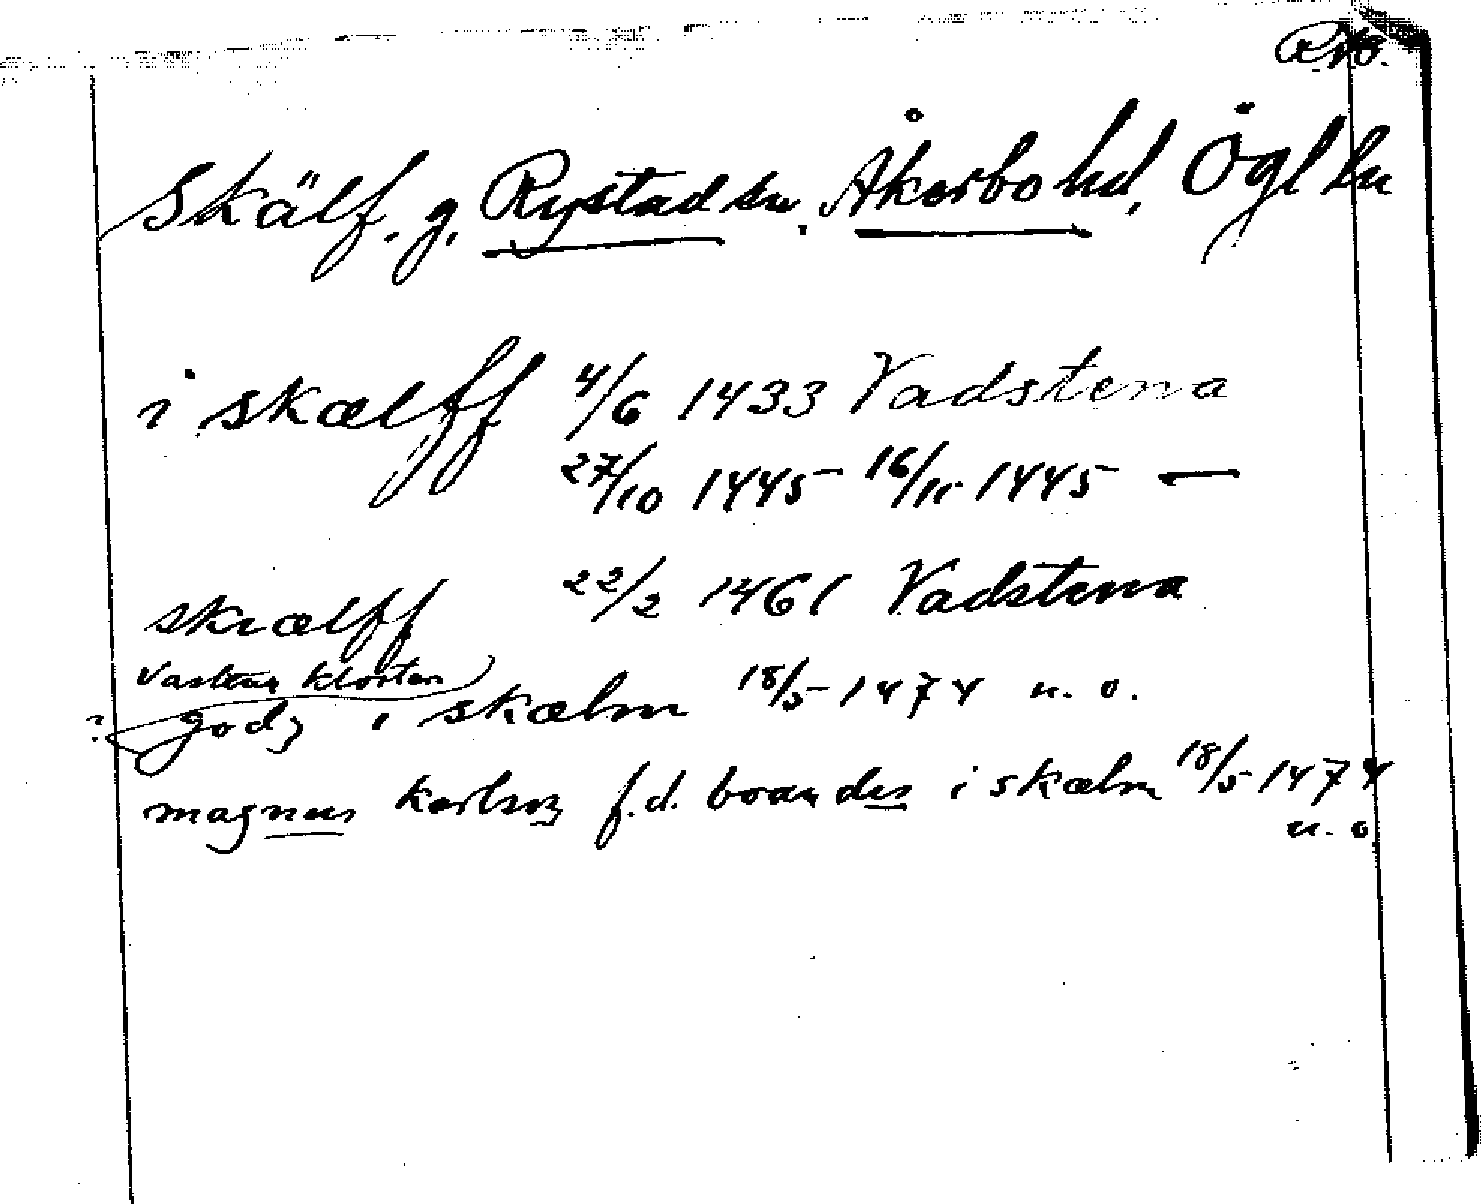 Skälf, g, Rystad sn, Åkerbo hd, Ögl ln
i skælff 4/6 1433 Vadstena
27/10 1445 16/11 1445 —
skiælff 22/2 1461 Vadstena
kloster
? godz i skælm 18/5 1474 u. o.
magnus f.d. boandes i skælm 18/5 1474
u. o.